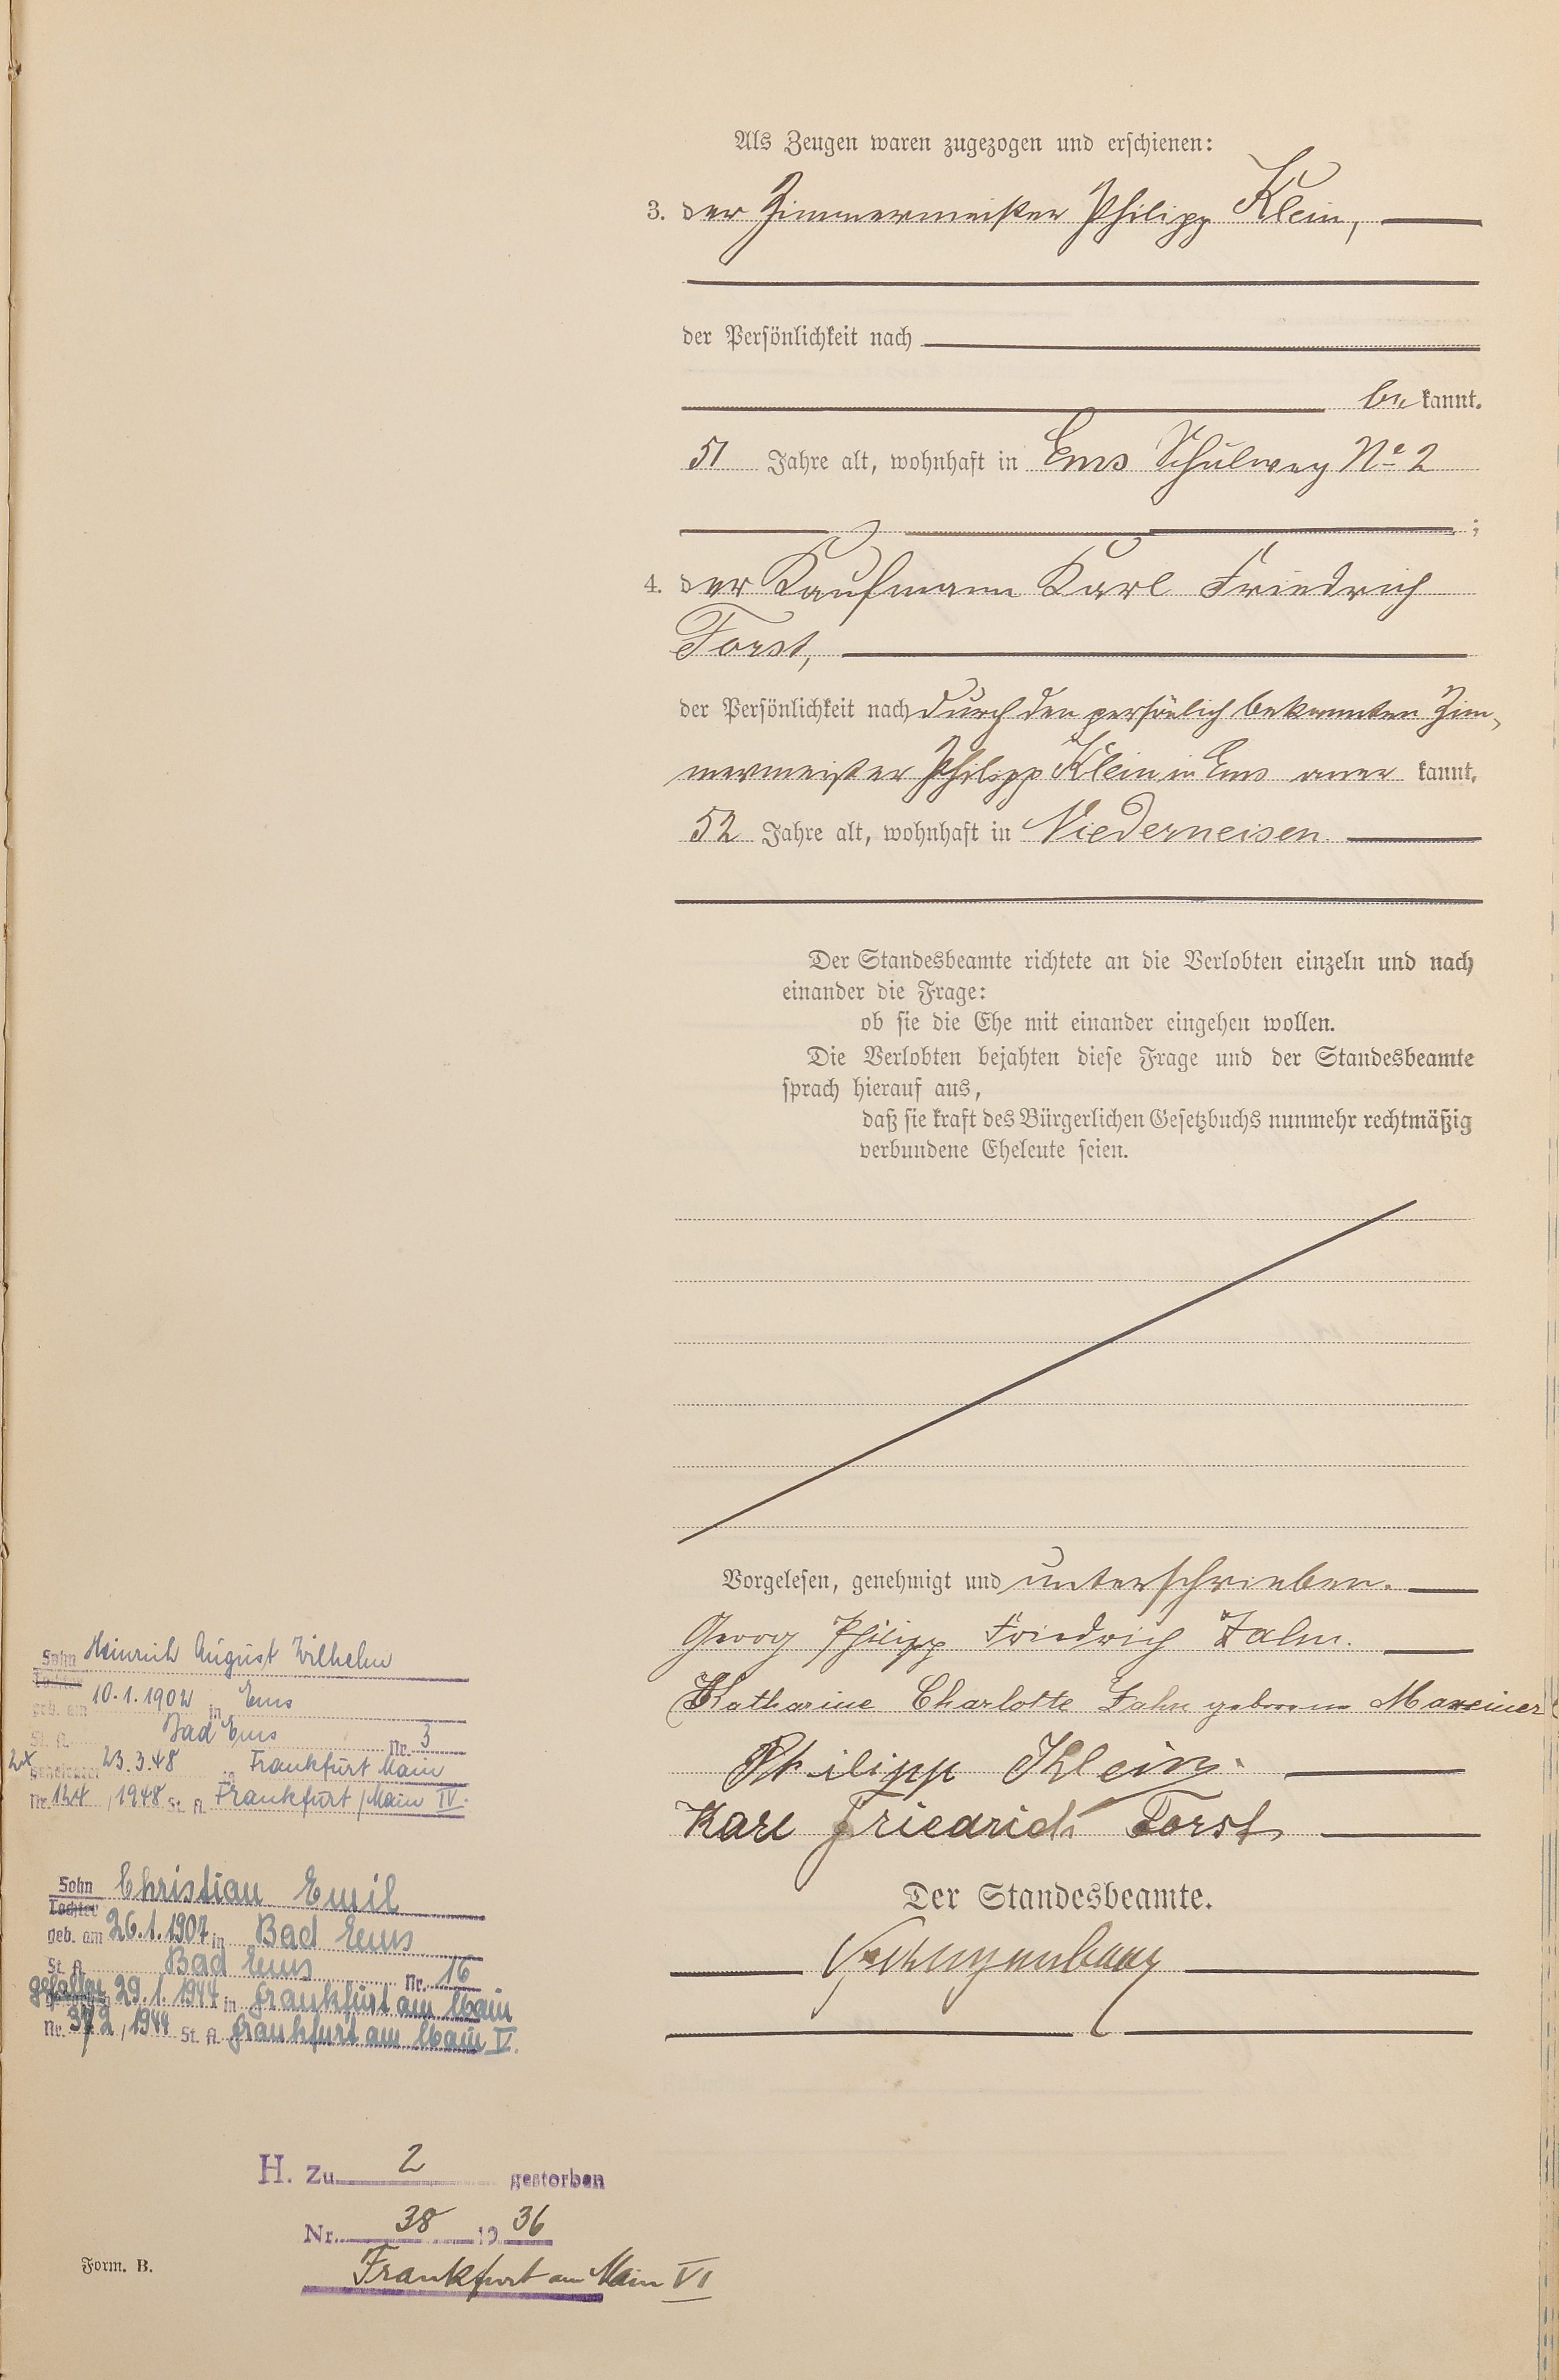 Als Zeugen waren zugezogen und erschienen:
3. der Zimmermeister Philipp Klein,
der Persönlichkeit nach
be kannt.
51 Jahre alt, wohnhaft in Ems Schulweg No 2
;
4. der Kaufmann Karl Friedrich
Forst,
der Persönlichkeit nach durch den persönlich bekannten Zim-
mermeister Philipp Klein in Ems aner kannt.
52 Jahre alt, wohnhaft in Niederneisen.
Der Standesbeamte richtete an die Verlobten einzeln und nach
einander die Frage:
ob sie die Ehe mit einander eingehen wollen.
Die Verlobten bejahten diese Frage und der Standesbeamte
sprach hierauf aus,
daß sie kraft des Bürgerlichen Gesetzbuchs nunmehr rechtmäßig
verbundene Eheleute seien.
Vorgelesen, genehmigt und unterschrieben.
Georg Philipp Friedrich Zahn.
Katharine Charlotte Zahn geborene Mareiner
Philipp Klein.
Karl Friedrich Forst
Der Standesbeamte.
Sohn Heinrich August Wilhelm
Tochter
geb. am 10.1.1902 in Ems
St. A. Bad Ems Nr. 3
2x geheiratet 23.3.48 in Frankfurt Main
Nr. 124 / 1948 St. A. Frankfurt / Main IV.
Sohn Christian Emil
Tochter
geb. am 26.1.1907 in Bad Ems
St. A. Bad Ems Nr. 16
gefallen 29.1.1944 in Frankfurt am Main
Nr. 372 / 1944 St. A. Frankfurt am Main V.
H. Zu 2 gestorben
Nr. 38 19 36
Frankfurt am Main VI
Form. B.